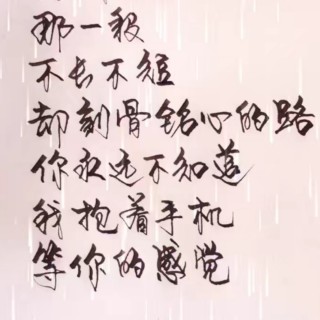 那一段
不长不短
却刻骨铭心的路
你永远不知道
我抱着手机
等你的感觉